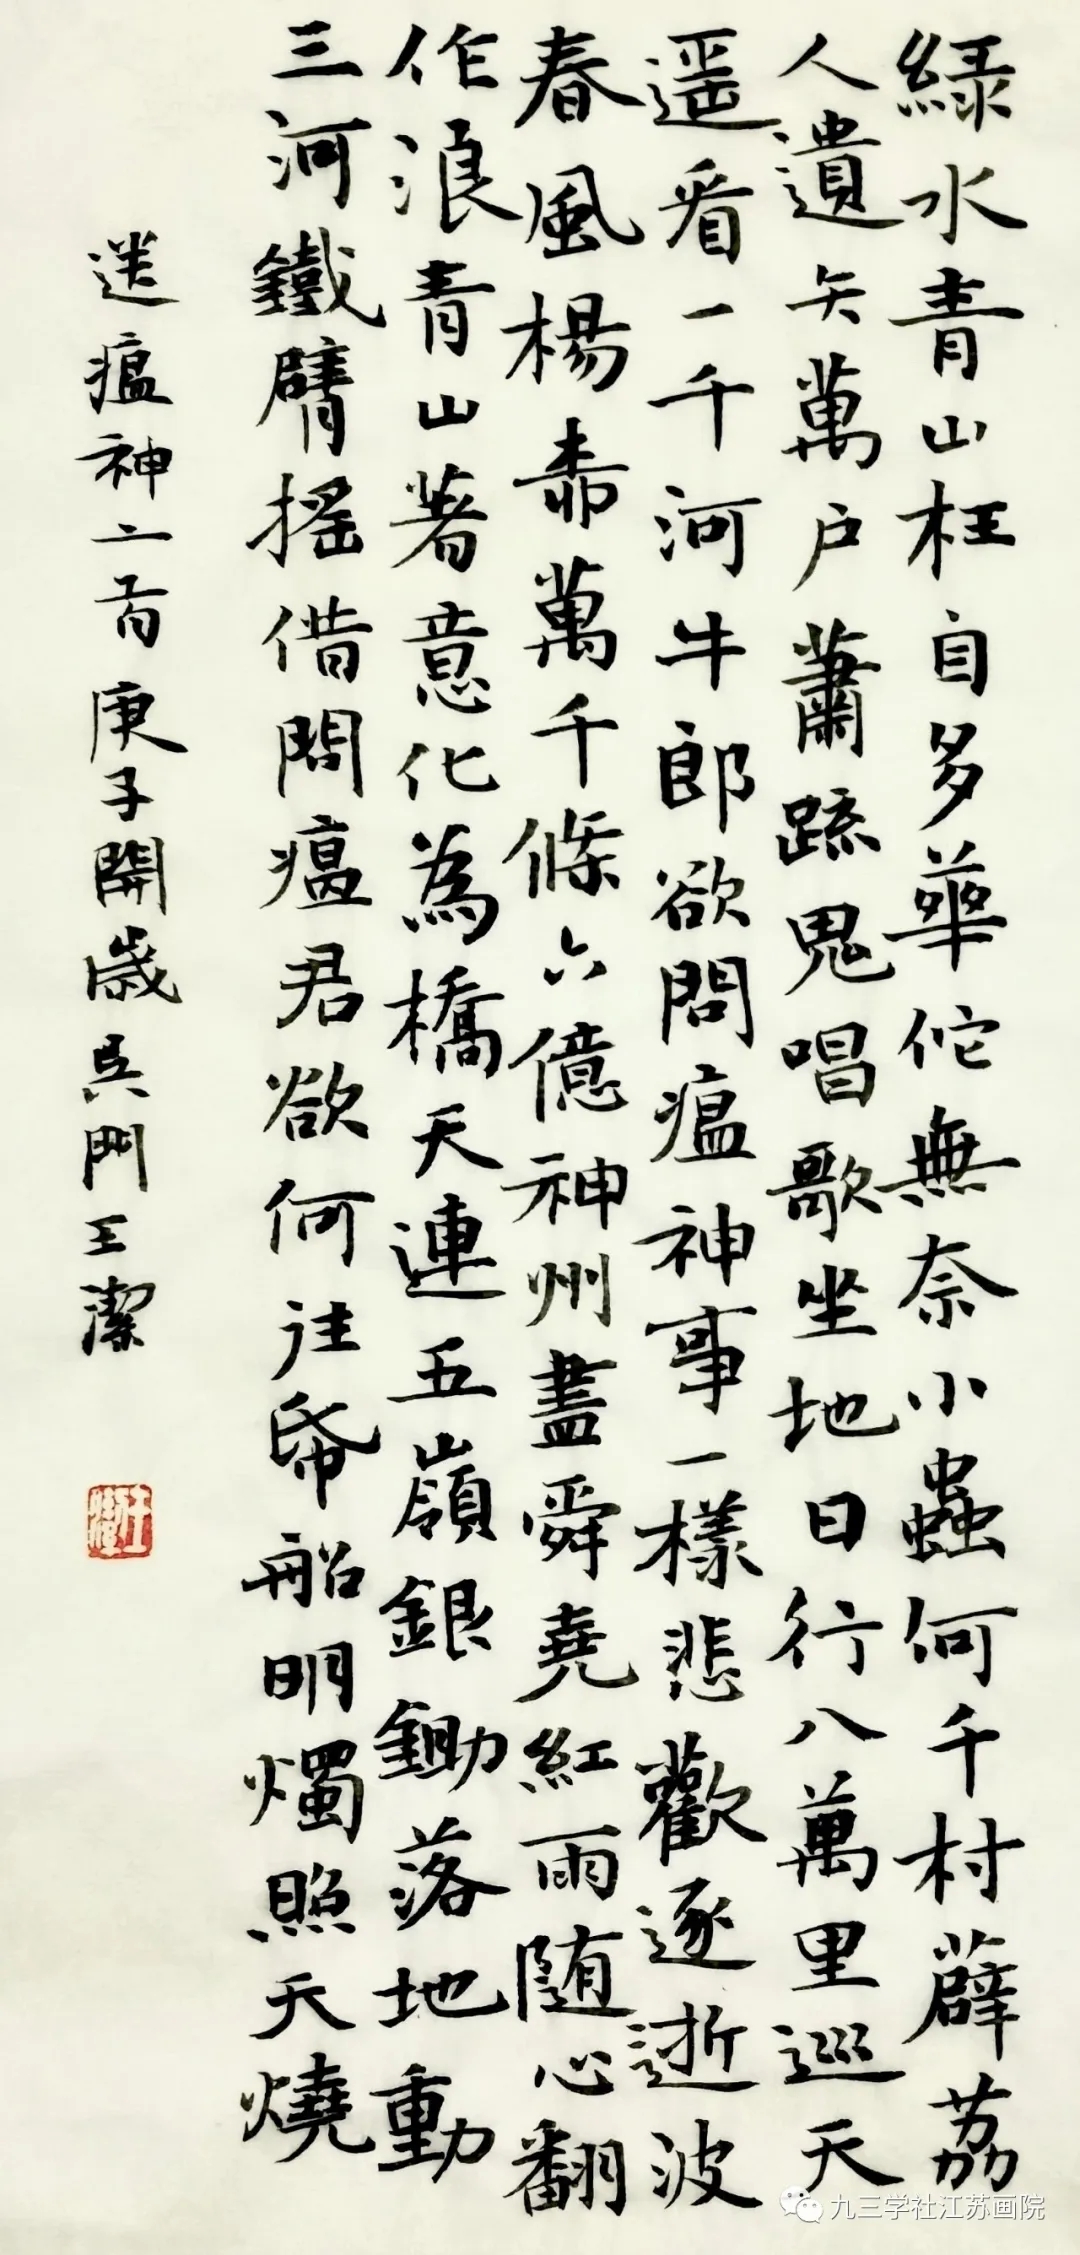 緑水青山枉自多華佗無奈小蟲何千村薜荔
人遺矢萬户蕭踈鬼唱歌坐地日行八萬里巡天
遥看一千河牛郎欲問瘟神事一樣悲歡逐逝波
春風楊柳萬千條六億神州盡舜堯紅雨随心翻
作浪青山著意化為橋天連五嶺銀鋤落地動
三河鐵臂摇借問瘟君欲何往帋船明燭照天燒
送瘟神二首庚子開歲吳門王潔
九三学社江苏画院